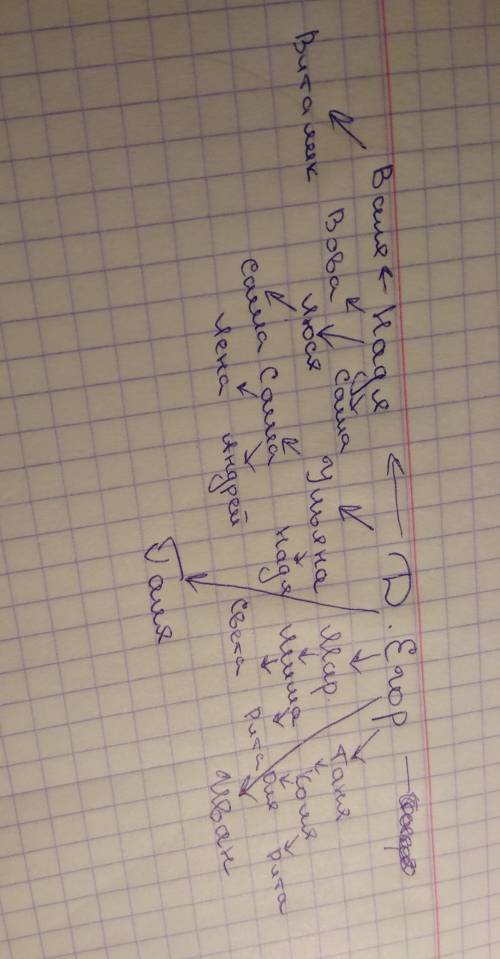 Д. Егор
Надя
Валя
Виталик
Вова
Люся
Саша
Саша
Лена
Саша
Андрей
Ульяна
Надя
Мар.
Миша
Света
Рита
Таня
Коля
Оля
Рита
Галя
Иван